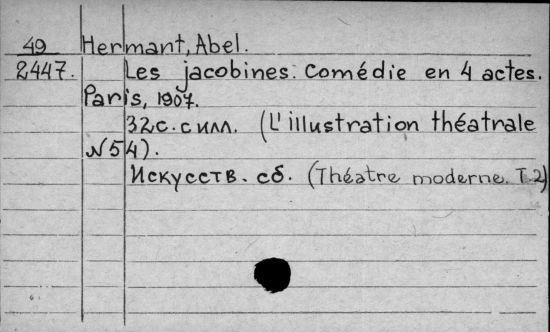 49 Hermant, Abel.
2447. Les jacobines. Comédie en 4 actes.
Paris, 1907.
32с. с илл. (L'illustration théatrale
N54).
Искусств. сб. (Théatre moderne. T.2)